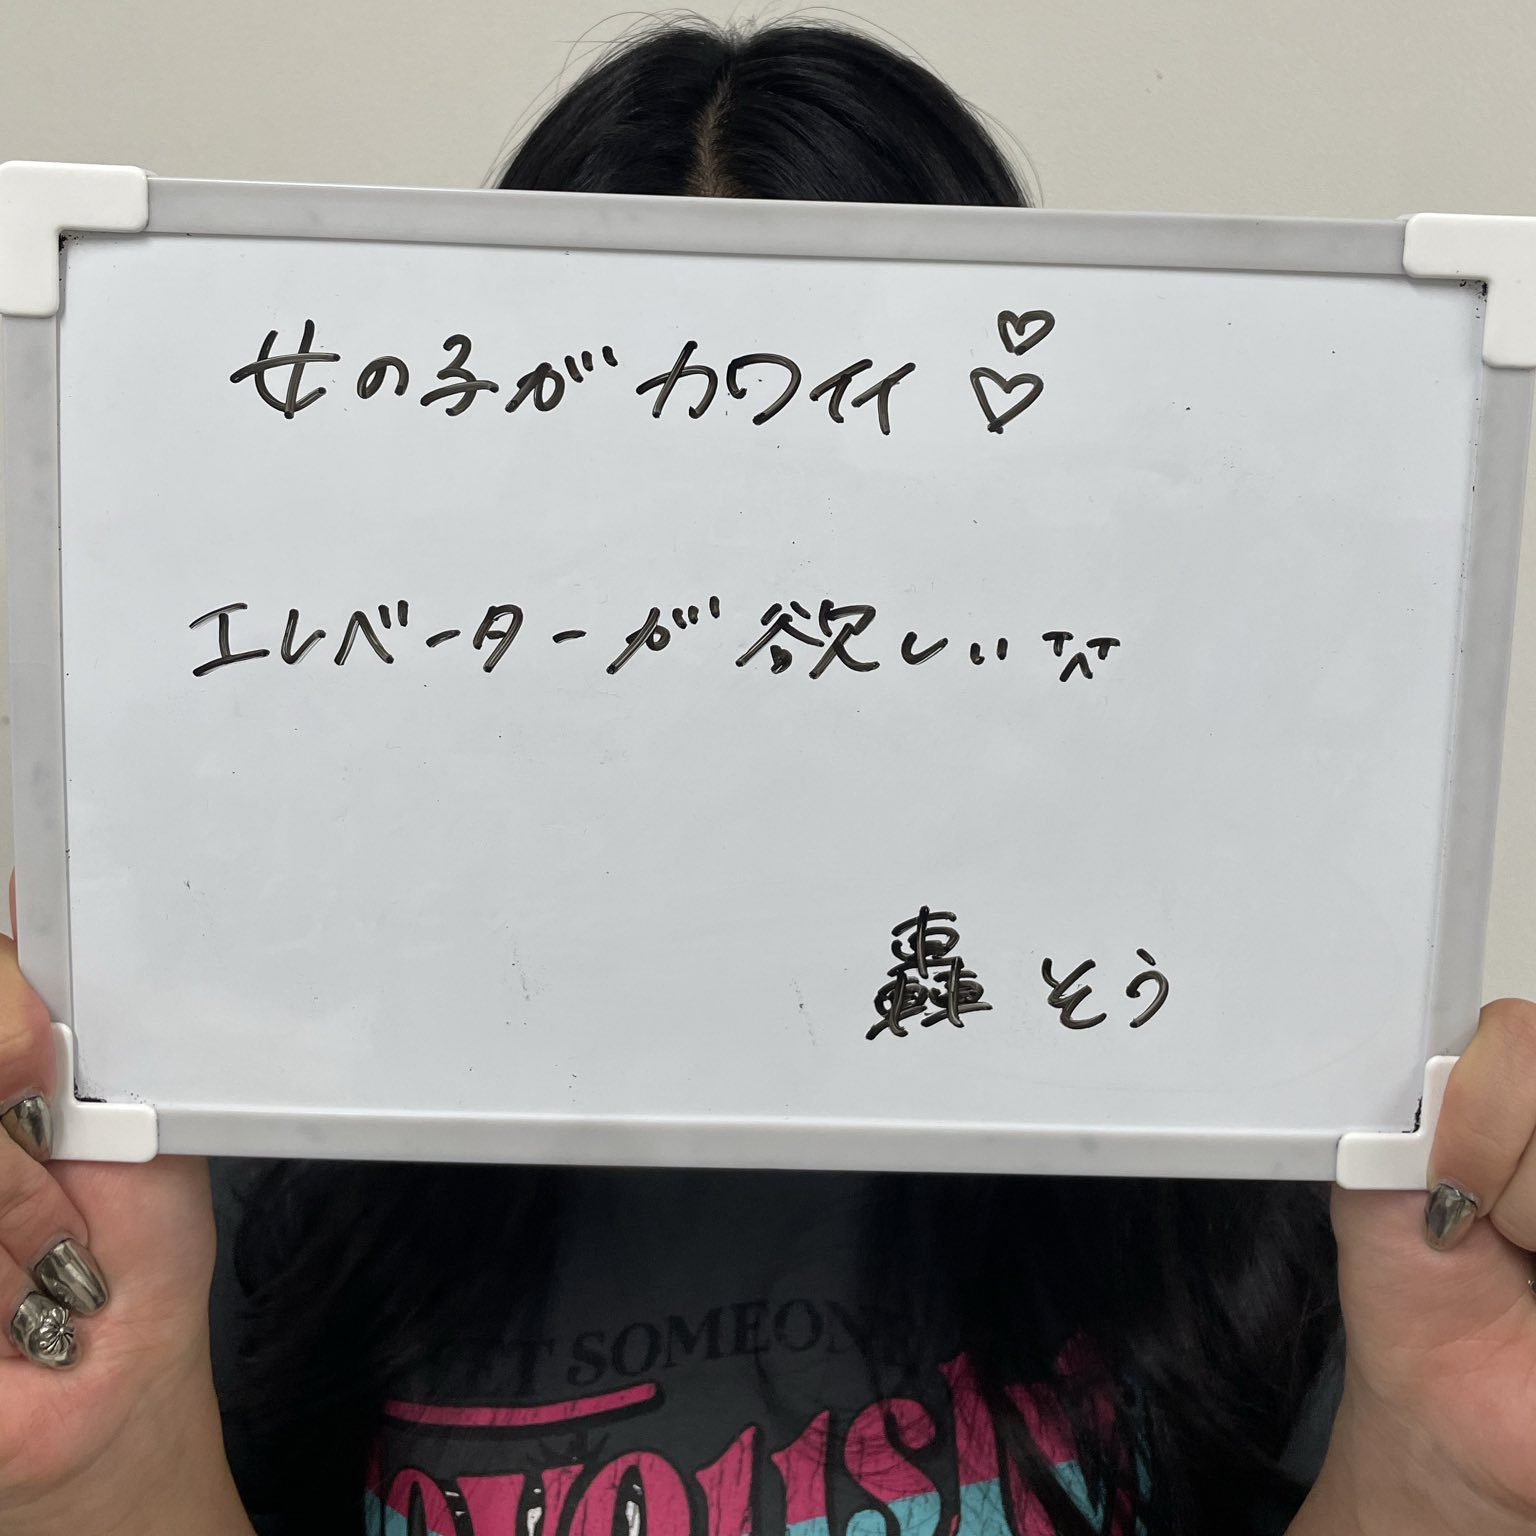 女の子がカワイイ♡♡
エレベーターが欲しいTT^
轟 そう
SOMEON